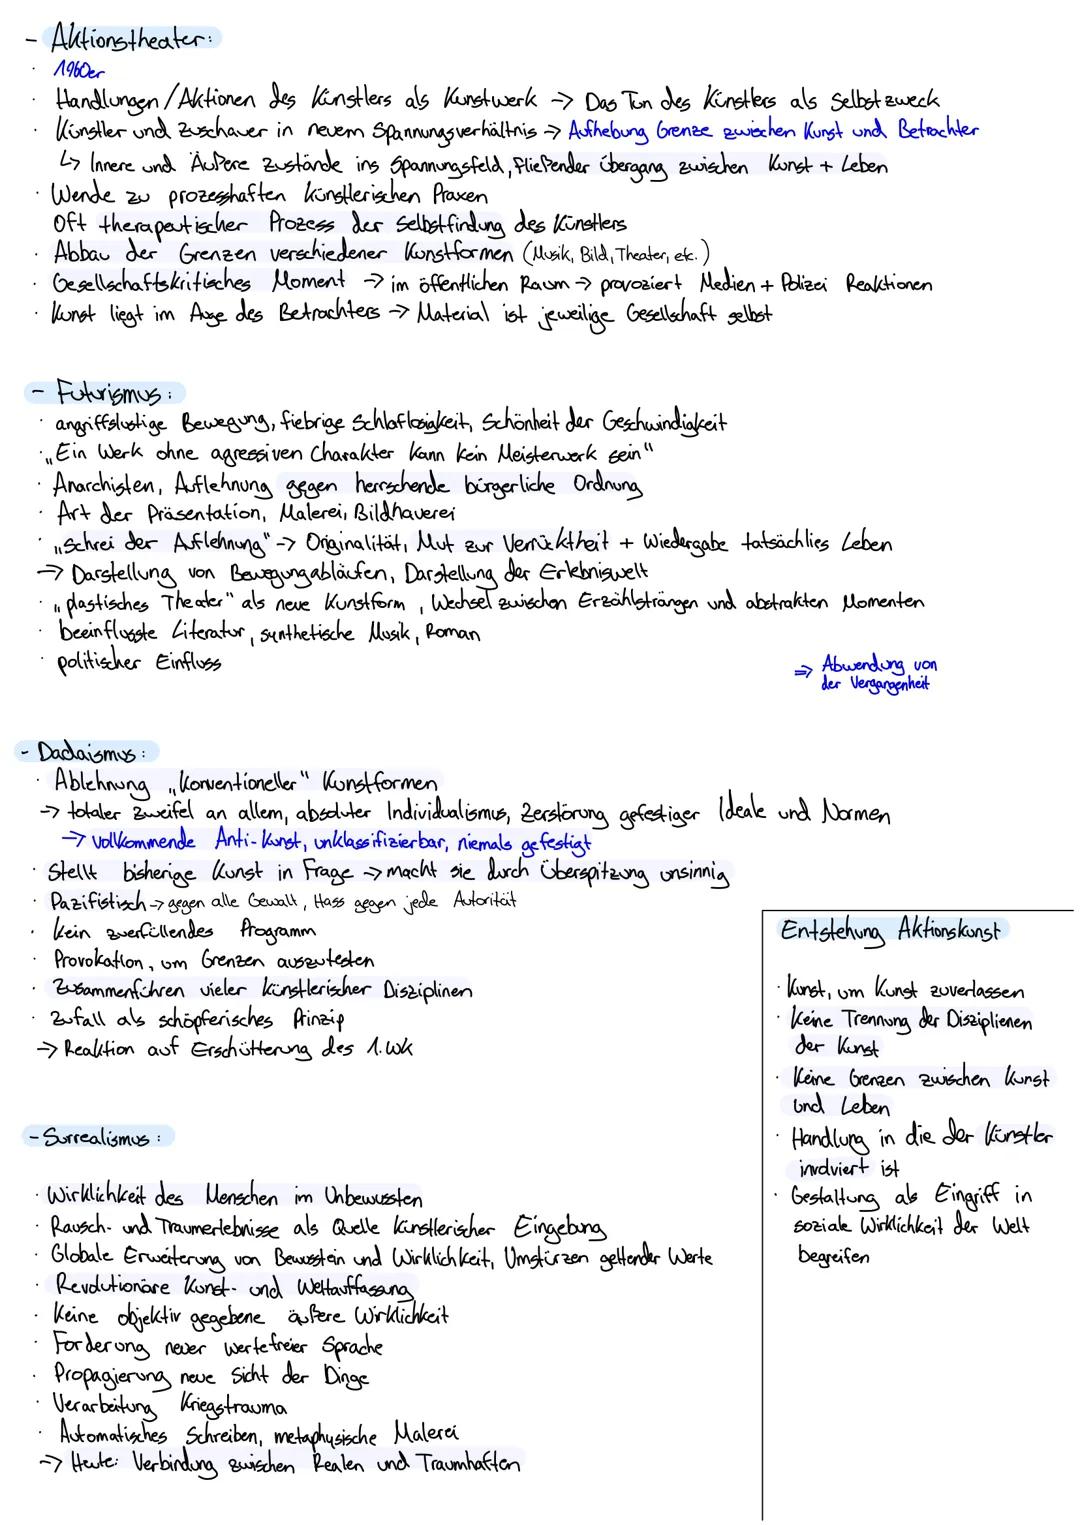 - Aktionstheater:
· 1960er
· Handlungen/Aktionen des Künstlers als Kunstwerk -> Das Tun des Künstlers als Selbstzweck
· Künstler und Zuschauer in neuem Spannungsverhältnis -> Aufhebung Grenze zwischen Kunst und Betrachter
↳ Innere und Äußere Zustände ins Spannungsfeld, fließender Übergang zwischen Kunst + Leben
· Wende zu prozesshaften künstlerischen Praxen
Oft therapeutischer Prozess der Selbstfindung des Künstlers
· Abbau der Grenzen verschiedener Kunstformen (Musik, Bild, Theater, etc.)
· Gesellschaftskritisches Moment -> im öffentlichen Raum -> provoziert Medien + Polizei Reaktionen
· Kunst liegt im Auge des Betrachters -> Material ist jeweilige Gesellschaft selbst
- Futurismus:
· angriffslustige Bewegung, fiebrige Schlaflosigkeit, Schönheit der Geschwindigkeit
· „Ein Werk ohne agressiven Charakter kann kein Meisterwerk sein"
· Anarchisten, Auflehnung gegen herrschende bürgerliche Ordnung
· Art der Präsentation, Malerei, Bildhauerei
· „Schrei der Auflehnung" -> Originalität, Mut zur Verrücktheit + Wiedergabe tatsächlies Leben
-> Darstellung von Bewegungabläufen, Darstellung der Erlebniswelt
· „plastisches Theater" als neue Kunstform, Wechsel zwischen Erzählsträngen und abstrakten Momenten
· beeinflusste Literatur, synthetische Musik, Roman
· politischer Einfluss
=> Abwendung von
der Vergangenheit
- Dadaismus:
· Ablehnung „konventioneller" Kunstformen
-> totaler Zweifel an allem, absoluter Individualismus, Zerstörung gefestiger Ideale und Normen
-> Vollkommende Anti-Kunst, unklassifizierbar, niemals gefestigt
· Stellt bisherige Kunst in Frage -> macht sie durch Überspitzung unsinnig
· Pazifistisch -> gegen alle Gewalt, Hass gegen jede Autorität
· kein zuerfüllendes Programm
· Provokation, um Grenzen auszutesten
· Zusammenführen vieler künstlerischer Disziplinen
· Zufall als schöpferisches Prinzip
-> Reaktion auf Erschütterung des 1. WK
Entstehung Aktionskunst
· Kunst, um Kunst zuverlassen
· Keine Trennung der Disziplienen
der Kunst
· Keine Grenzen zwischen Kunst
und Leben
· Handlung in die der Künstler
involviert ist
· Gestaltung als Eingriff in
soziale Wirklichkeit der Welt
begreifen
- Surrealismus:
· Wirklichkeit des Menschen im Unbewussten
· Rausch- und Traumerlebnisse als Quelle künstlerischer Eingebung
· Globale Erweiterung von Bewusstein und Wirklichkeit, Umstürzen geltender Werte
· Revolutionäre Kunst- und Weltauffassung
· Keine objektiv gegebene äußere Wirklichkeit
· Forderung neuer wertefreier Sprache
· Propagierung neue Sicht der Dinge
· Verarbeitung Kriegstrauma
· Automatisches Schreiben, metaphysische Malerei
-> Heute: Verbindung zwischen Realen und Traumhaften